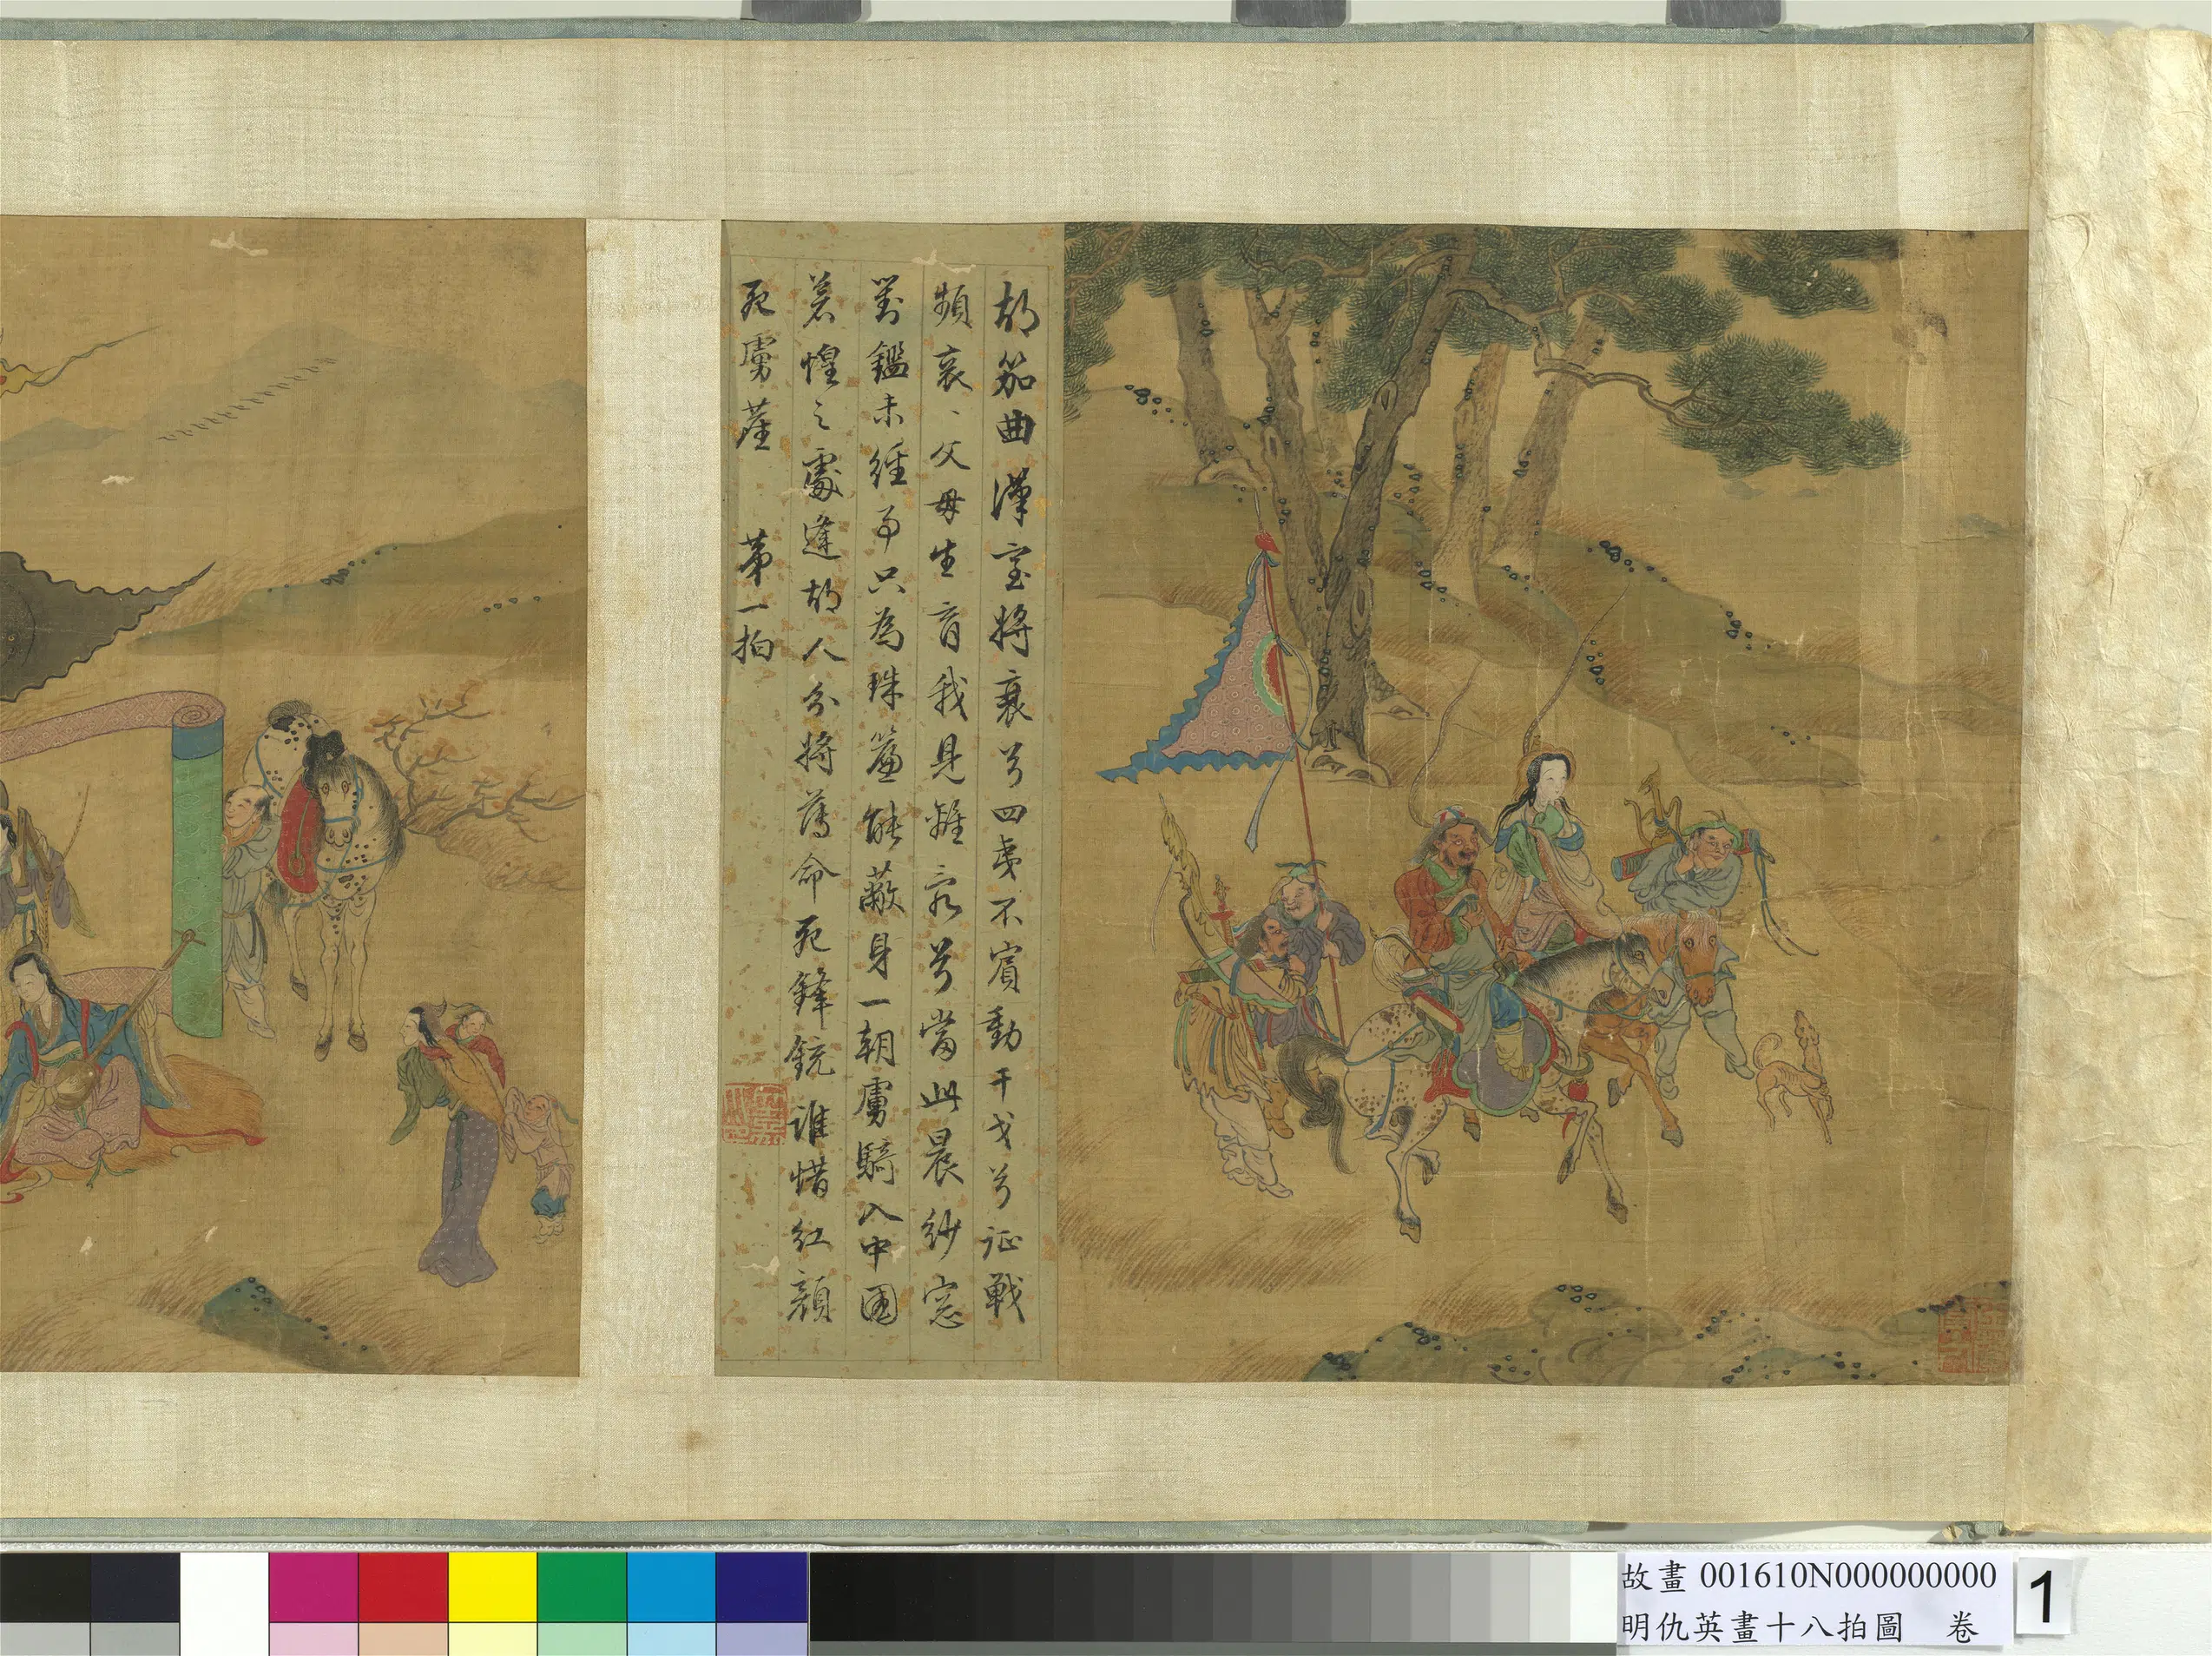 胡笳曲漢室將衰兮四夷不賓動干戈兮征戰
頻哀〻父母生育我見離亂兮當此晨紗窓
對鏡未經事只為珠簾能蔽身一朝虜騎入中國
蒼惶之處逢胡人分將薄命死鋒鋭誰惜紅顔
死虜塵　第一拍
故畫 001610N000000000
明仇英畫十八拍圖 卷
1